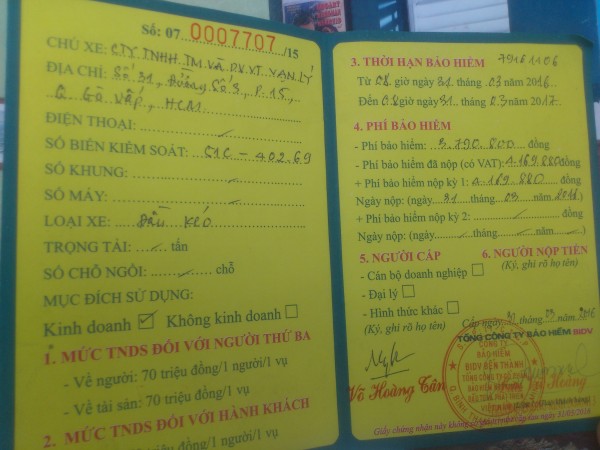 Số: 07 0007707 /15
CHỦ XE: CTY TNHH TM VÀ DV VT VẠN LÝ
ĐỊA CHỈ: Số 31, Đường Số 3, P.15,
Q Gò Vấp, HCM
ĐIỆN THOẠI:
SỐ BIỂN KIỂM SOÁT: 51C - 402.69
SỐ KHUNG:
SỐ MÁY:
LOẠI XE: Đầu Kéo
TRỌNG TẢI: tấn
SỐ CHỖ NGỒI: chỗ
MỤC ĐÍCH SỬ DỤNG:
Kinh doanh Không kinh doanh
1. MỨC TNDS ĐỐI VỚI NGƯỜI THỨ BA
- Về người: 70 triệu đồng/1 người/1 vụ
- Về tài sản: 70 triệu đồng/1 vụ
2. MỨC TNDS ĐỐI VỚI HÀNH KHÁCH
triệu đồng/1 người/1 vụ
3. THỜI HẠN BẢO HIỂM 79161106
Từ 08 giờ ngày 31 tháng 03 năm 2016
Đến 08 giờ ngày 31 tháng 03 năm 2017
4. PHÍ BẢO HIỂM
- Phí bảo hiểm: 3.790.800 đồng
- Phí bảo hiểm đã nộp (có VAT): 4.169.880 đồng
+ Phí bảo hiểm nộp kỳ 1: 4.169.880 đồng
Ngày nộp: (ngày 31 tháng 03 năm 2016
+ Phí bảo hiểm nộp kỳ 2: đồng
Ngày nộp: (ngày tháng năm )
5. NGƯỜI CẤP 6. NGƯỜI NỘP TIỀN
- Cán bộ doanh nghiệp (Ký, ghi rõ họ tên)
- Đại lý
- Hình thức khác
(Ký, ghi rõ họ tên) Cấp ngày 31 tháng 03 năm 2016
TỔNG CÔNG TY BẢO HIỂM BIDV
CÔNG TY
BẢO HIỂM
BIDV BẾN THÀNH
Võ Hoàng Tân
Giấy chứng nhận này không có giá trị nếu cấp sau ngày 31/03/2016